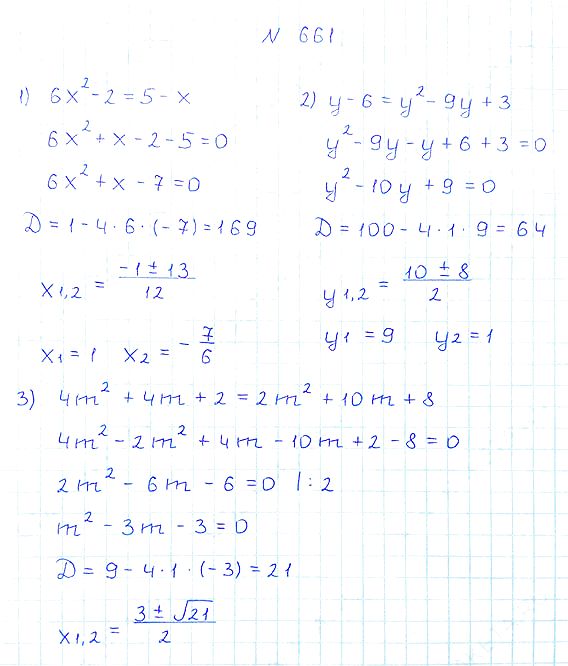 N 661
1) 6x² - 2 = 5 - x
6x² + x - 2 - 5 = 0
6x² + x - 7 = 0
D = 1 - 4 · 6 · (-7) = 169
x1,2 = (-1 ± 13)/12
x1 = 1 x2 = -7/6
2) y - 6 = y² - 9y + 3
y² - 9y - y + 6 + 3 = 0
y² - 10y + 9 = 0
D = 100 - 4 · 1 · 9 = 64
y1,2 = (10 ± 8)/2
y1 = 9 y2 = 1
3) 4m² + 4m + 2 = 2m² + 10m + 8
4m² - 2m² + 4m - 10m + 2 - 8 = 0
2m² - 6m - 6 = 0 |: 2
m² - 3m - 3 = 0
D = 9 - 4 · 1 · (-3) = 21
x1,2 = (3 ± √21)/2